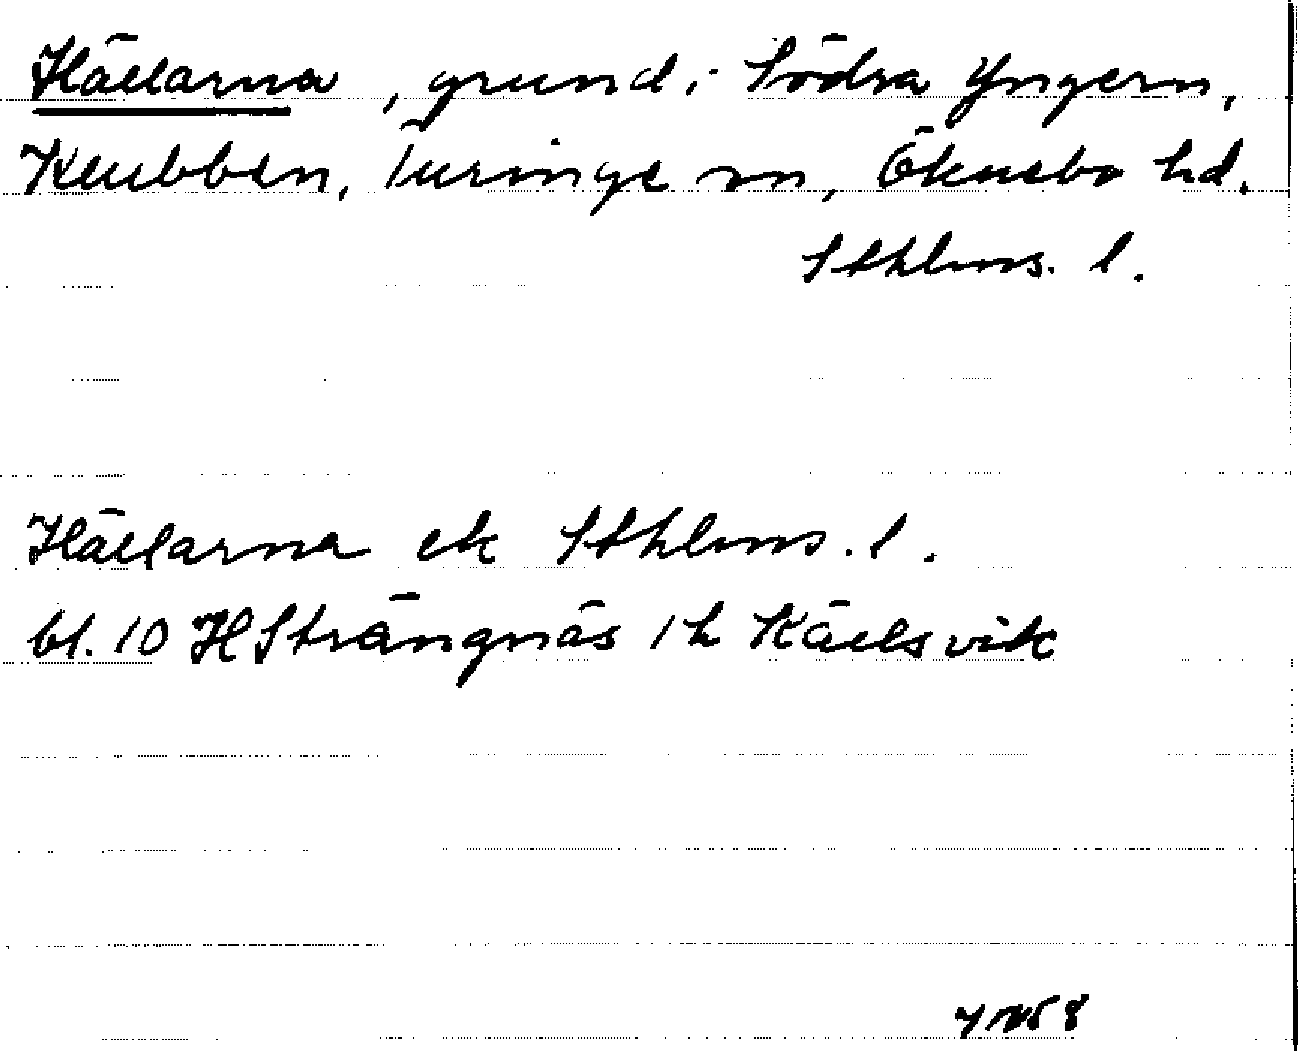 Hällarna, grund i Södra Yngern,
Klubben, Turinge sn, Öknebo hd.
Sthlms. l.
Hällarna ek Sthlms. l.
bl. 10 H Strängnäs 1 h Källsvik